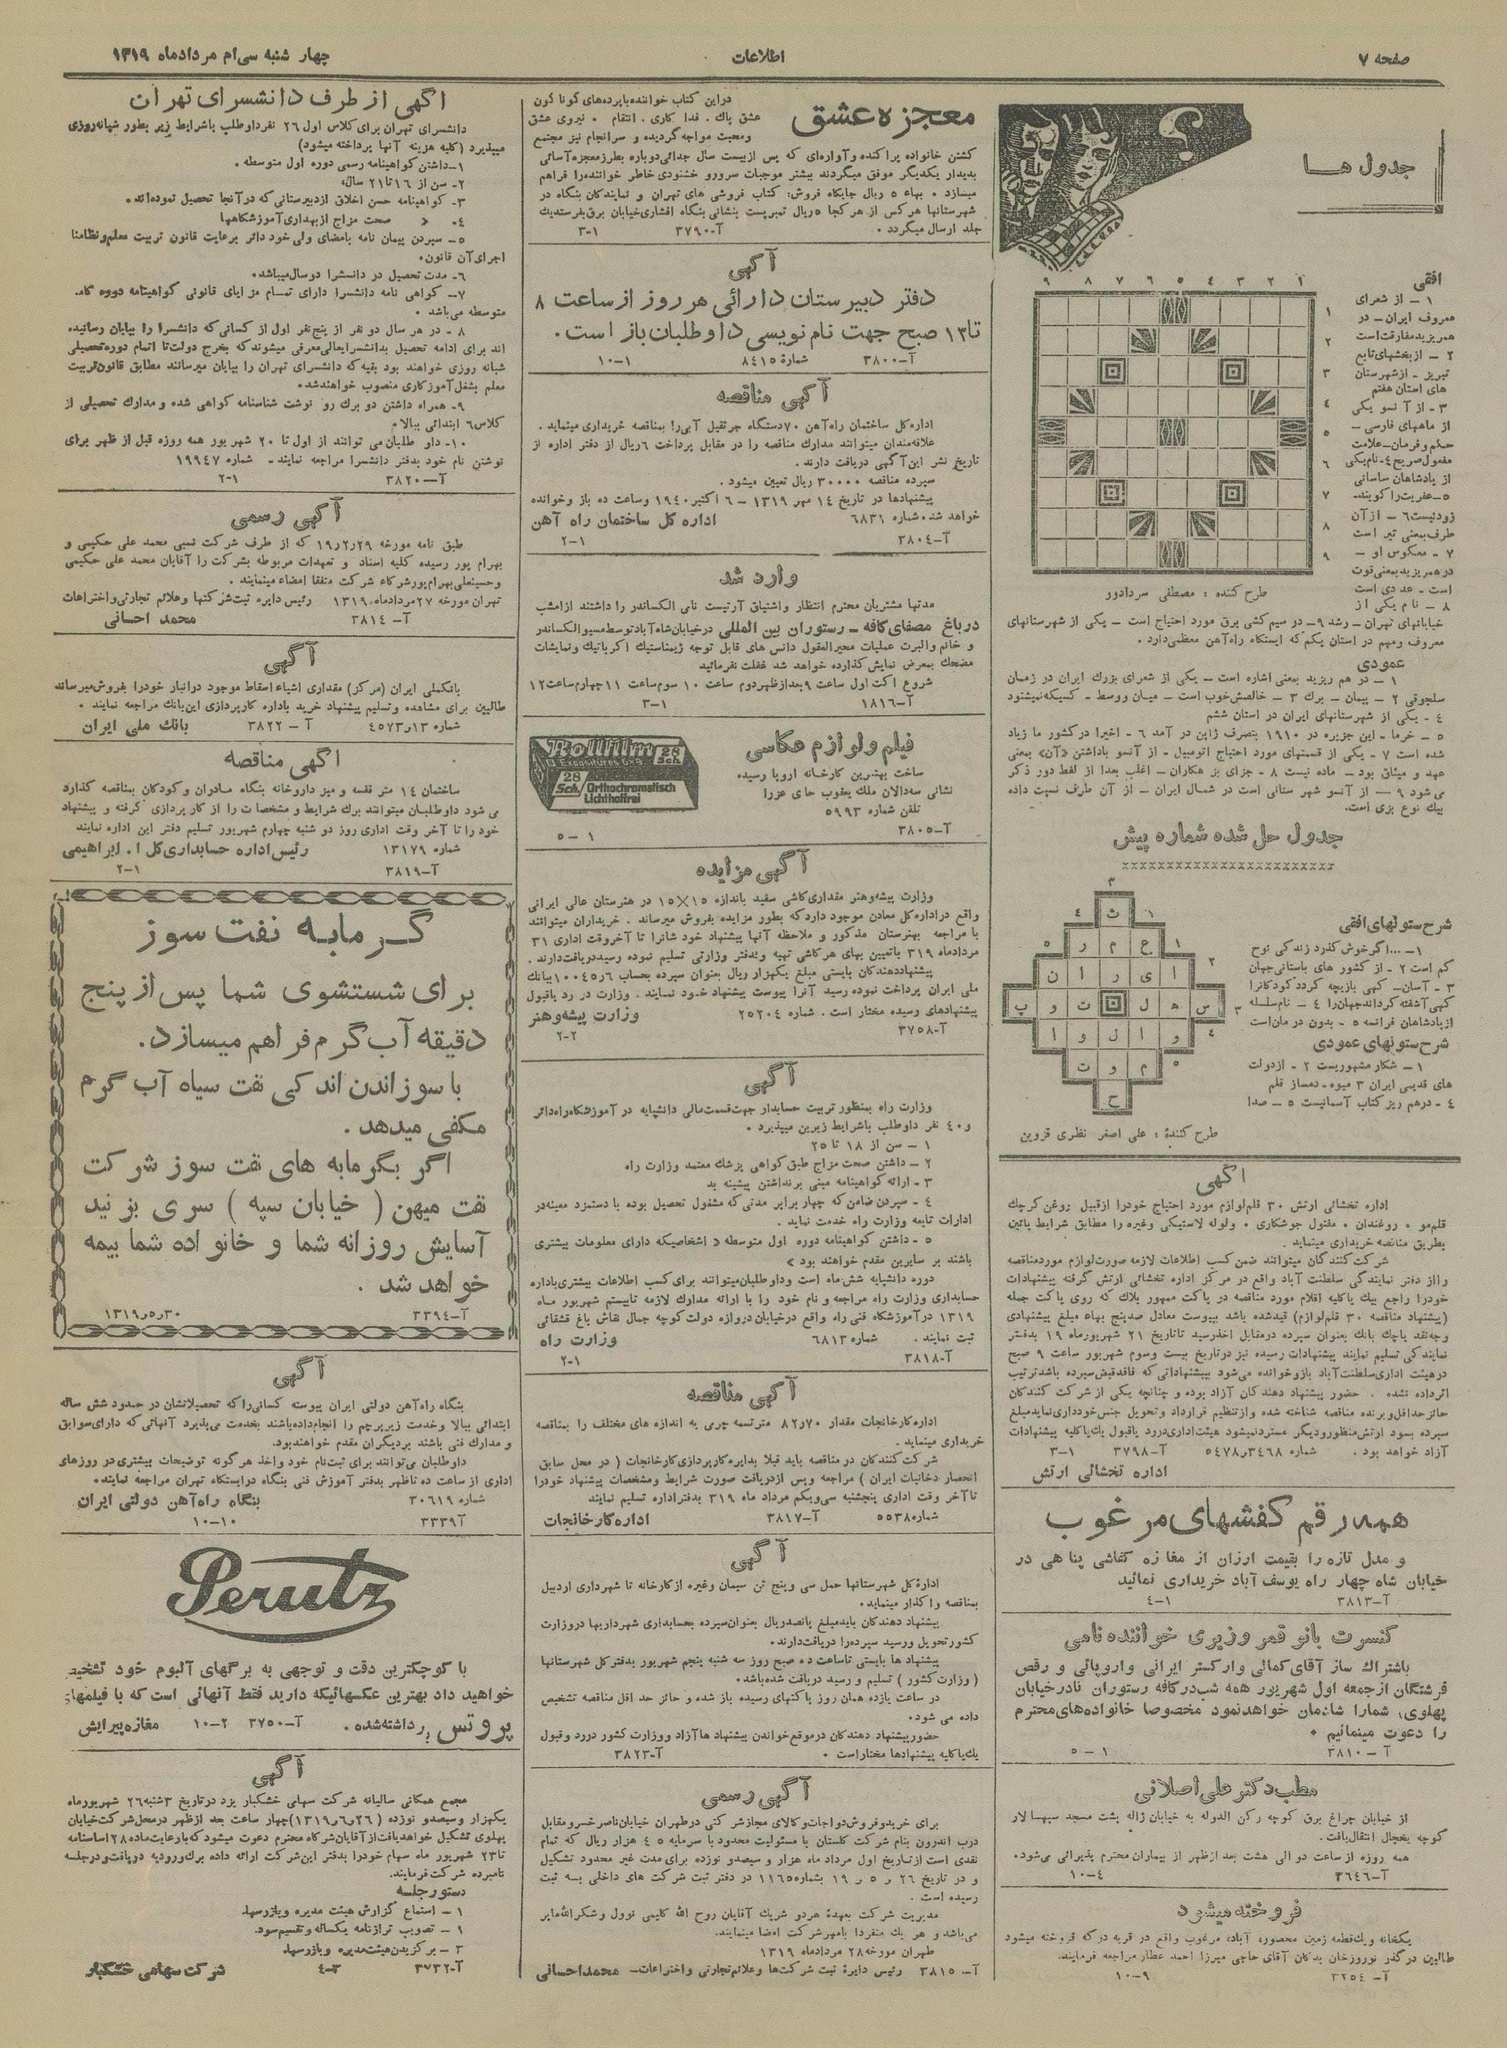 صفحه ۷
اطلاعات
چهار شنبه سی‌ام مردادماه ۱۳۱۹
جدول ها
افقی
۱ ۲ ۳ ۴ ۵ ۶ ۷ ۸ ۹
۱ – از شعرای
معروف ایران – در
همریزید مفارقت است
۲ – از بخشهای تابع
تبریز – از شهرستان
های استان هفتم
۳ – از آنسو یکی
از ماههای فارسی –
حکم و فرمان – علامت
مفعول صریح ۴ – نام یکی
از پادشاهان ساسانی
۵ – عفریت را کویند –
زود نیست ۶ – از آن
طرف بمعنی تیر است
۷ – معکوس او –
در همریزید بمعنی قوت
است – عددی است
۸ – نام یکی از
طرح کننده : مصطفی سردادور
خیابانهای تهران – رشد ۹ – در سیم کشی برق مورد احتیاج است – یکی از شهرستانهای
معروف ومهم در استان یکم که ایستگاه راه‌آهن معظمی دارد.
عمودی
۱ – در هم ریزید بمعنی اشاره است – یکی از شعرای بزرك ایران در زمان
سلجوقی ۲ – پیمان – برك ۳ – خالصش خوب است – میان ووسط – کسیکه نمیشنود
۴ – یکی از شهرستانهای ایران در استان ششم
۵ – خرما – این جزیره در ۱۹۱۰ بتصرف ژاپن در آمد ۶ – اخیرا در کشور ما زیاد
شده است ۷ – یکی از قسمتهای مورد احتیاج اتومبیل – از آنسو باداشتن «آن» بمعنی
عهد و میثاق بود – ماده نیست ۸ – جزای بز هکاران – اغلب بعدا از لفط دور ذکر
می شود ۹ – از آنسو شهر ستانی است در شمال ایران – از آن طرف نسبت داده
بیك نوع بزی است.
جدول حل شده شماره پیش
شرح ستونهای افقی
۱ – ...اگر خوش کذرد زندگی نوح
کم است ۲ – از کشور های باستانی جهان
۳ – آسان – کهی بازیچه کردد کودکانرا
کهی آشفته کرداند جهان را ۴ – نام سلسله
از پادشاهان فرانسه ۵ – بدون درمان است
شرح ستونهای عمودی
۱ – شکار مشهوریست ۲ – از دولت
های قدیمی ایران ۳ میوه – دمساز قلم
۴ – درهم ریز کتاب آسمانیست ۵ – صدا
ث
ع م ر
ا ی ر ا ن
س ه ل ت و پ
و ا ل و ا
م و ت
ح
طرح کنندهٔ : علی اصغر نظری قزوین
آگهی
اداره تخشائی ارتش ۳۰ قلم لوازم مورد احتیاج خودرا از قبیل روغن کرچك
قلم مو ، روغندان ، مفتول جوشکاری ، ولوله لاستیکی وغیره را مطابق شرایط پائین
بطریق مناقصه خریداری مینماید .
شرکت کنندگان میتوانند ضمن کسب اطلاعات لازمه صورت لوازم مورد مناقصه
را از دفتر نمایندگی سلطنت آباد واقع در مرکز اداره تخشائی ارتش گرفته پیشنهادات
خودرا راجع بیك یا کلیه اقلام مورد مناقصه در پاکت ممهور بلاك که روی پاکت جمله
(پیشنهاد مناقصه ۳۰ قلم لوازم) قیدشده باشد بپیوست معادل صدپنج بهاء مبلغ پیشنهادی
وجه نقد یا چك بانك بعنوان سپرده در مقابل اخذ رسید تا تاریخ ۲۱ شهریور ماه ۱۹ بدفتر
نمایندگی تسلیم نمایند پیشنهادات رسیده نیز در تاریخ بیست وسوم شهریور ساعت ۹ صبح
در هیئت اداری سلطنت آباد باز وخوانده می‌شود بپیشنهاداتی که فاقد قبض سپرده باشد ترتیب
اثر داده نشده . حضور پیشنهاد دهندکان آزاد بوده و چنانچه یکی از شرکت کنندکان
حائز حداقل وبرنده مناقصه شناخته شده واز تنظیم قرارداد وتحویل جنس خودداری نماید مبلغ
سپرده بسود ارتش منظور ودیگر مسترد نمیشود هیئت اداری در رد یا قبول یك یا کلیه پیشنهادات
آزاد خواهد بود . شماره ۵۴۷۸ر۳۴۶۸ آ–۳۷۹۸ ۳–۱
اداره تخشائی ارتش
همه رقم کفشهای مرغوب
و مدل تازه را بقیمت ارزان از مغازه کفاشی پناهی در
خیابان شاه چهار راه یوسف آباد خریداری نمائید
آ–۳۸۱۳ ۴–۱
کنسرت بانو قمر وزیری خواننده نامی
باشتراك ساز آقای کمالی وارکستر ایرانی واروپائی و رقص
فرشتگان از جمعه اول شهریور همه شب در کافه رستوران نادر خیابان
پهلوی، شمارا شادمان خواهد نمود مخصوصا خانواده‌های محترم
را دعوت مینمائیم *
آ – ۳۸۱۰ ۵–۱
مطب دکتر علی اصلانی
از خیابان چراغ برق کوچه رکن الدوله به خیابان ژاله پشت مسجد سپهسالار
کوچه یخچال انتقال یافت.
همه روزه از ساعت دو الی هشت بعد از ظهر از بیماران محترم پذیرائی می‌شود.
آ–۳۶۴۶ ۱۰–۴
فروخته میشود
یکخانه ویك قطعه زمین محصور، آباد، مرغوب واقع در قریه درکه فروخته میشود
طالبین در گذر نوروزخان بدکان آقای حاجی میرزا احمد عطار مراجعه فرمایند.
آ – ۳۲۵۴ ۱۰–۹
معجزه عشق
دراین کتاب خواننده با پرده‌های گوناگون
عشق پاك ، فدا کاری ، انتقام . نیروی عشق
ومحبت مواجه گردیده و سرانجام نیز مجتمع
کشتن خانواده پراکنده وآواره‌ای که پس از بیست سال جدائی دوباره بطرز معجزه آسائی
بدیدار یکدیگر موفق میگردند بیشتر موجبات سرور و خشنودی خاطر خواننده را فراهم
میسازد . بهاء ۵ ریال جایگاه فروش: کتاب فروشی های تهران و نمایندگان بنگاه در
شهرستانها هر کس از هر کجا ۵ ریال تمبر پست بنشانی بنگاه افشاری خیابان برق بفرستد یك
جلد ارسال میگردد . آ–۳۷۹۰ ۳–۱
آگهی
دفتر دبیرستان دارائی هر روز از ساعت ۸
تا ۱۳ صبح جهت نام نویسی داوطلبان باز است.
آ–۳۸۰۰ شمارهٔ ۸۴۱۵ ۱۰–۱
آگهی مناقصه
اداره کل ساختمان راه‌آهن ۷۰ دستگاه جرثقیل آبی را بمناقصه خریداری مینماید .
علاقه‌مندان میتوانند مدارك مناقصه را در مقابل پرداخت ۶ ریال از دفتر اداره از
تاریخ نشر این آگهی دریافت دارند .
سپرده مناقصه ۳۰۰۰۰ ریال تعیین میشود .
پیشنهادها در تاریخ ۱۴ مهر ۱۳۱۹ – ۶ اکتبر ۱۹۴۰ وساعت ده باز وخوانده
خواهد شد. شماره ۶۸۳۱ اداره کل ساختمان راه آهن
آ–۳۸۰۴ ۲–۱
وارد شد
مدتها مشتریان محترم انتظار واشتیاق آرتیست نامی الکساندر را داشتند از امشب
در باغ مصفای کافه – رستوران بین المللی در خیابان شاه آباد توسط مسیو الکساندر
و خانم والبرت عملیات محیرالمقول دانس های قابل توجه ژیمناستیك آکرباتیك ونمایشات
مضحك بمعرض نمایش گذارده خواهد شد غفلت نفرمائید
شروع اکت اول ساعت ۹ بعد از ظهر دوم ساعت ۱۰ سوم ساعت ۱۱ چهارم ساعت ۱۲
آ–۱۸۱۶ ۳–۱
فیلم ولوازم عکاسی
ساخت بهترین کارخانه اروپا رسیده
نشانی سه‌دالان ملك یعقوب حای عزرا
تلفن شماره ۵۹۹۳
آ–۳۸۰۵ ۵–۱
Rollfilm 28 Sch.
Expositures 6×9
28 Sch. Orthochromatisch
Lichthoffrei
آگهی مزایده
وزارت پیشه وهنر مقداری کاشی سفید باندازه ۱۵×۱۵ در هنرستان عالی ایرانی
واقع در اداره کل معادن موجود دارد که بطور مزایده بفروش میرساند . خریداران میتوانند
با مراجعه بهنرستان مذکور و ملاحظه آنها پیشنهاد خود شانرا تا آخر وقت اداری ۳۱
مردادماه ۳۱۹ با تعیین بهای هر کاشی تهیه وبدفتر وزارتی تسلیم نموده رسید دریافت دارند .
پیشنهاد دهندکان بایستی مبلغ یکهزار ریال بعنوان سپرده بحساب ۶ر۱۰۰۴۵ ببانك
ملی ایران پرداخت نموده رسید آنرا پیوست پیشنهاد خود نمایند . وزارت در رد یا قبول
پیشنهادهای رسیده مختار است . شماره ۲۵۲۰۴ وزارت پیشه و هنر
آ–۳۷۵۸ ۲–۲
آگهی
وزارت راه بمنظور تربیت حسابدار جهت قسمت مالی دانشپایه در آموزشگاه راه دائر
و ۴۰ نفر داوطلب باشرایط زیرین میپذیرد .
۱ – سن از ۱۸ تا ۲۵
۲ – داشتن صحت مزاج طبق کواهی پزشك معتمد وزارت راه
۳ – ارائه کواهینامه مبنی برنداشتن پیشینه بد
۴ – سپردن ضامن که چهار برابر مدتی که مشغول تحصیل بوده با دستمزد معینه در
ادارات تابعه وزارت راه خدمت نماید .
۵ – داشتن کواهینامه دوره اول متوسطه « اشخاصیکه دارای معلومات بیشتری
باشند بر سایرین مقدم خواهند بود »
دوره دانشپایه شش ماه است وداوطلبان میتوانند برای کسب اطلاعات بیشتری باداره
حسابداری وزارت راه مراجعه و نام خود را با ارائه مدارك لازمه تا بیستم شهریور ماه
۱۳۱۹ در آموزشگاه فنی راه واقع در خیابان دروازه دولت کوچه جمال نقاش باغ قشقائی
ثبت نمایند . شماره ۶۸۱۳ وزارت راه
آ–۳۸۱۸ ۲–۱
آگهی مناقصه
اداره کارخانجات مقدار ۷۰ر۸۲ متر تسمه چرمی به اندازه های مختلف را بمناقصه
خریداری مینماید .
شرکت کنندکان در مناقصه باید قبلا بدایره کارپردازی کارخانجات ( در محل سابق
انحصار دخانیات ایران ) مراجعه وپس از دریافت صورت شرایط ومشخصات پیشنهاد خودرا
تا آخر وقت اداری پنجشنبه سی ویکم مرداد ماه ۳۱۹ بدفتر اداره تسلیم نمایند
شماره ۵۵۳۸ آ–۳۸۱۷ اداره کارخانجات
آگهی
ادارهٔ کل شهرستانها حمل سی وپنج تن سیمان وغیره از کارخانه تا شهرداری اردبیل
بمناقصه واگذار مینماید.
پیشنهاد دهندکان باید مبلغ پانصد ریال بعنوان سپرده بحسابداری شهرداریها در وزارت
کشور تحویل ورسید سپرده را دریافت دارند.
پیشنهاد ها بایستی تا ساعت ده صبح روز سه شنبه پنجم شهریور بدفتر کل شهرستانها
( وزارت کشور ) تسلیم و رسید دریافت شده باشد.
در ساعت یازده همان روز پاکتهای رسیده باز شده و حائز حد اقل مناقصه تشخیص
داده می شود.
حضور پیشنهاد دهندکان در موقع خواندن پیشنهاد ها آزاد ووزارت کشور دررد وقبول
یك یا کلیه پیشنهادها مختار است . آ–۳۸۲۳
آگهی رسمی
برای خرید وفروش دواجات وکالای مجاز شرکتی در طهران خیابان ناصرخسرو مقابل
درب اندرون بنام شرکت گلستان با مسئولیت محدود با سرمایه ۴۵ هزار ریال که تمام
نقدی است از تاریخ اول مرداد ماه هزار و سیصد و نوزده برای مدت غیر محدود تشکیل
و در تاریخ ۲۶ ر ۵ ر ۱۹ بشماره ۱۱۶۵ در دفتر ثبت شرکت های داخلی به ثبت
رسیده است .
مدیریت شرکت بعهدهٔ هر دو شریك آقایان روح الله کلیمی نوول وشکرالله مایر
می‌باشد و هر یك منفردا بامهر شرکت امضا مینمایند.
طهران مورخه ۲۸ مردادماه ۱۳۱۹
آ – ۳۸۱۵ رئیس دایرهٔ ثبت شرکت‌ها وعلائم تجارتی واختراعات – محمد احسانی
آگهی از طرف دانشسرای تهران
دانشسرای تهران برای کلاس اول ۲۶ نفر داوطلب باشرایط زیر بطور شبانه روزی
میپذیرد (کلیه هزینه آنها پرداخته میشود)
۱ – داشتن کواهینامه رسمی دوره اول متوسطه .
۲ – سن از ۱۶ تا ۲۱ سال،
۳ – کواهینامه حسن اخلاق از دبیرستانی که در آنجا تحصیل نموده‌اند.
۴ – « صحت مزاج از بهداری آموزشگاهها
۵ – سپردن پیمان نامه بامضای ولی خود دائر برعایت قانون تربیت معلم ونظامنامه
اجرای آن قانون.
۶ – مدت تحصیل در دانشسرا دوسال میباشد.
۷ – کواهی نامه دانشسرا دارای تمام مزایای قانونی کواهینامه دوره کامل
متوسطه می‌باشد .
۸ – در هر سال دو نفر از پنج نفر اول از کسانی که دانشسرا را بپایان رسانیده
اند برای ادامه تحصیل بدانشسرایعالی معرفی میشوند که بخرج دولت تا اتمام دوره تحصیلی
شبانه روزی خواهند بود بقیه که دانشسرای تهران را بپایان میرسانند مطابق قانون تربیت
معلم بشغل آموزکاری منصوب خواهند شد.
۹ – همراه داشتن دو برك رو نوشت شناسنامه کواهی شده و مدارك تحصیلی از
کلاس ۶ ابتدائی ببالا.
۱۰ – داو طلبان می توانند از اول تا ۲۰ شهریور همه روزه قبل از ظهر برای
نوشتن نام خود بدفتر دانشسرا مراجعه نمایند. شماره ۱۹۹۴۷
آ–۳۸۲۰ ۲–۱
آگهی رسمی
طبق نامه مورخه ۲۹ر۲ر۱۹ که از طرف شرکت نسبی محمد علی حکیمی و
بهرام پور رسیده کلیه اسناد و تعهدات مربوطه بشرکت را آقایان محمد علی حکیمی
وحسینعلی بهرام پور شرکاء شرکت متفقا امضاء مینمایند .
تهران مورخه ۲۷ مردادماه ۱۳۱۹. رئیس دایره ثبت شرکتها وعلائم تجارتی واختراعات
آ – ۳۸۱۴ محمد احسانی
آگهی
بانک ملی ایران (مرکز) مقداری اشیاء اسقاط موجود در انبار خودرا بفروش میرساند
طالبین برای مشاهده وتسلیم پیشنهاد خرید باداره کارپردازی این بانك مراجعه نمایند .
شماره ۱۳ر۴۵۷۳ آ – ۳۸۲۲ بانك ملی ایران
آگهی مناقصه
ساختمان ۱۴ متر قفسه و میز داروخانه بنگاه مادران و کودکان بمناقصه گذارده
می شود داوطلبان میتوانند برك شرایط و مشخصات را از کار پردازی گرفته و پیشنهاد
خود را تا آخر وقت اداری روز دو شنبه چهارم شهریور تسلیم دفتر این اداره نمایند
شماره ۱۳۱۷۹ رئیس اداره حسابداری کل ا. ابراهیمی
آ–۳۸۱۹ ۲–۱
گرمابه نفت سوز
برای شستشوی شما پس از پنج
دقیقه آب گرم فراهم میسازد.
با سوزاندن اندکی نفت سیاه آب گرم
مکفی میدهد .
اگر بگرمابه های نفت سوز شرکت
نفت میهن ( خیابان سپه ) سری بزنید
آسایش روزانه شما و خانواده شما بیمه
خواهد شد .
آ–۳۳۹۴ ۳۰ر۵ر۱۳۱۹
آگهی
بنگاه راه‌آهن دولتی ایران پیوسته کسانی را که تحصیلاتشان در حدود شش ساله
ابتدائی ببالا وخدمت زیر پرچم را انجام داده باشند بخدمت می‌پذیرد آنهائی که دارای سوابق
و مدارك فنی باشند بر دیگران مقدم خواهند بود.
داوطلبان می‌توانند برای ثبت نام خود واخذ هر گونه توضیحات بیشتری در روزهای
اداری از ساعت ده تا ظهر بدفتر آموزش فنی بنگاه در ایستگاه تهران مراجعه نمایند.
شماره ۳۰۶۱۹ بنگاه راه‌آهن دولتی ایران
آ۳۳۳۹ ۱۰–۱۰
Perutz
با کوچکترین دقت و توجهی به برگهای آلبوم خود تشخیص
خواهید داد بهترین عکسهائیکه دارید فقط آنهائی است که با فیلمهای
پروتس برداشته شده . آ–۳۷۵۰ ۱۰–۲ مغازه پیرایش
آگهی
مجمع همکانی سالیانه شرکت سهامی خشکبار یزد در تاریخ ۳ شنبه ۲۶ شهریور ماه
یکهزار وسیصدو نوزده (۲۶ر۶ر۱۳۱۹) چهار ساعت بعد از ظهر در محل شرکت خیابان
پهلوی تشکیل خواهد یافت از آقایان شرکاء محترم دعوت میشود که بارعایت ماده ۲۸ اساسنامه
تا ۲۳ شهریور ماه سهام خودرا بدفتر این شرکت ارائه داده برك ورودیه دریافت ودر جلسه
نامبرده شرکت فرمایند.
دستور جلسه
۱ – استماع گزارش هیئت مدیره وبازرسها.
۲ – تصویب ترازنامه یکساله وتقسیم سود.
۳ – برگزیدن هیئت مدیره وبازرسها.
آ–۳۷۳۲ ۴–۳ شرکت سهامی خشکبار